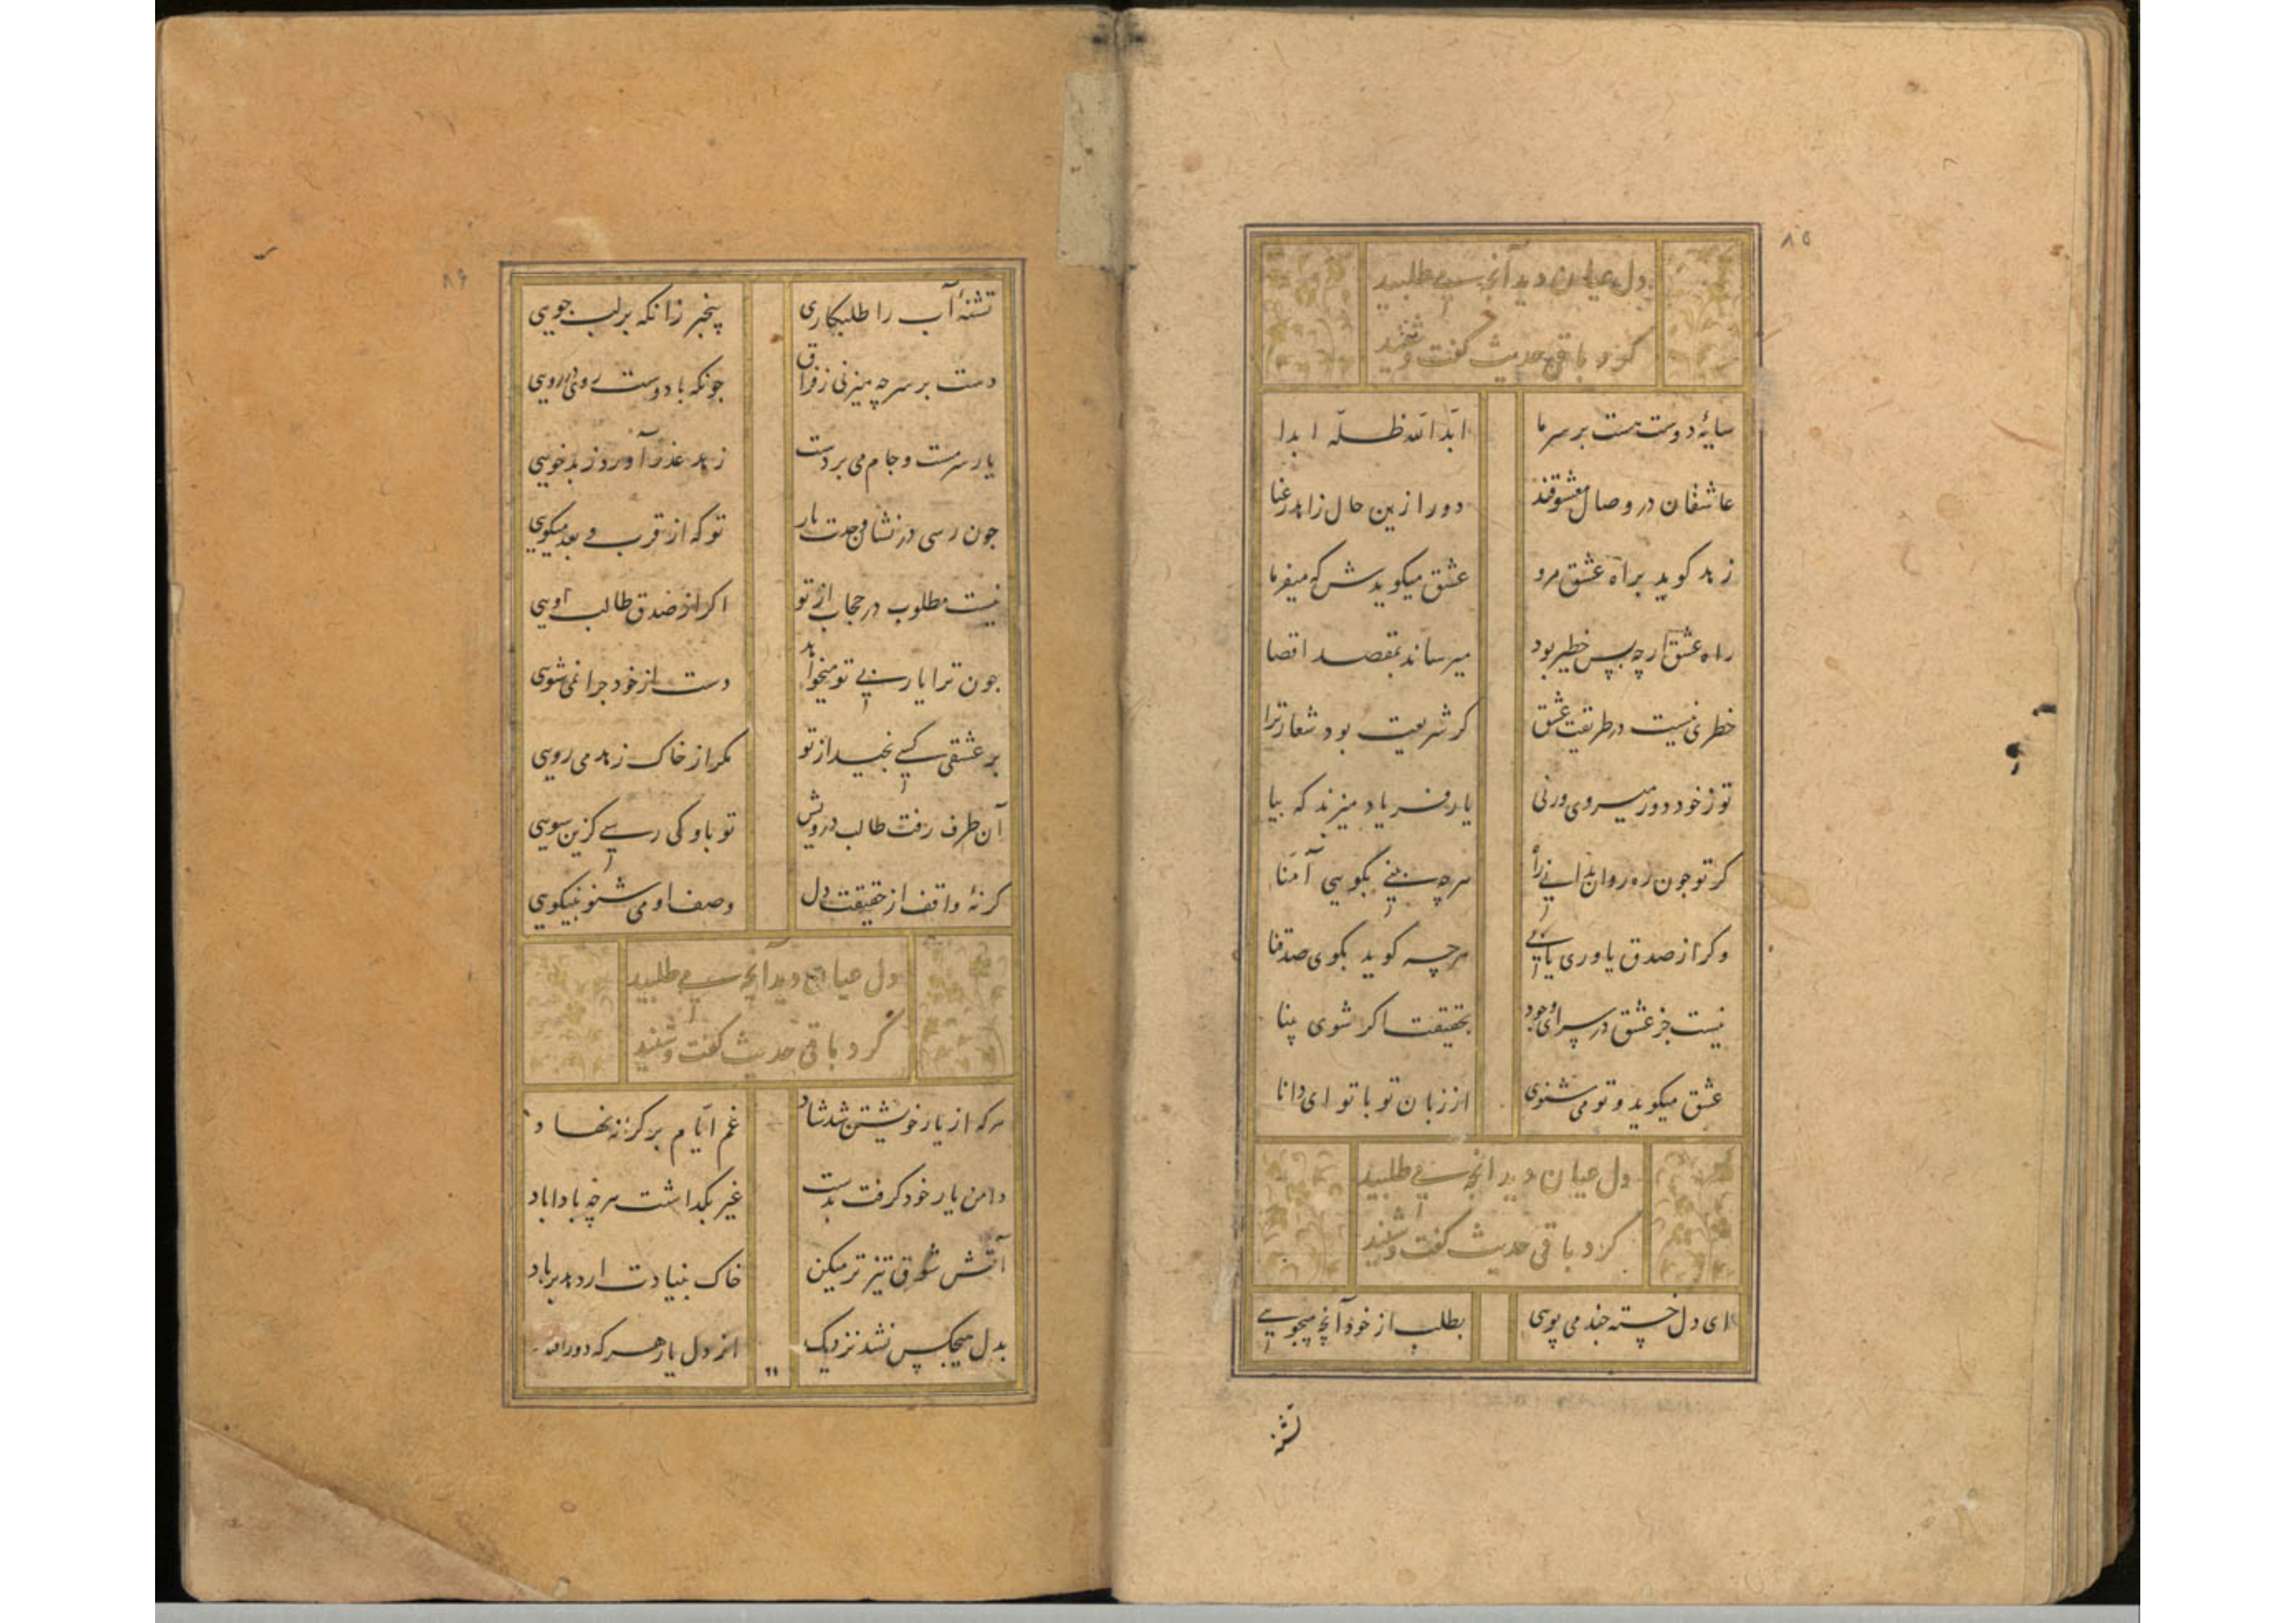 ۸۵
دل عیان دید آنچه می طلبید
کرد باقی حدیث گفت و شنید
سایهٔ دوست هست بر سر ما ابّد اللّه ظلّه ابدا
عاشقان در وصال معشوقند دور ازین حال زاهد رعنا
زهد کوید براه عشق مرو عشق میکویدش که میفرما
راه عشق ارچه بس خطیر بود میرساند بمقصد اقصا
خطری نیست در طریقت عشق کر شریعت بود شعار ترا
تو ز خود دور میروی ورنی یار فریاد میزند که بیا
کر تو جون ره روان بدانی راه هرچه بینی بکویی آمنا
وکر از صدق یاوری یابی هرچه کوید بکوی صدقنا
نیست جز عشق در سرای وجود بحقیقت اکر شوی بینا
عشق میکوید و تو می شنوی از زبان تو با تو ای دانا
دل عیان دید آنچه می طلبید
کرد باقی حدیث گفت و شنید
ای دل خسته جند می پویی بطلب از خود آنچه میجویی
تشنه
۸۶
تشنهٔ آب را طلبکاری بیخبر زانکه بر لب جویی
دست بر سر چه میزنی ز فراق جونکه با دوست روی در رویی
یار سرمست و جام می بر دست زهد عذر آورد ز بدخویی
جون رسی در نشان وحدت یار تو که از قرب و بعد میکویی
نیست مطلوب در حجاب از تو اکر از صدق طالب اویی
جون ترا یار بی تو میخواهد دست از خود جرا نمی شویی
بر عشقی کسی نچید از تو مکر از خاک زهد می رویی
آن طرف رفت طالب درویش تو باو کی رسی کزین سویی
کر نهٔ واقف از حقیقت دل وصف او می شنو بنیکویی
دل عیان دید آنچه می طلبید
کرد باقی حدیث گفت و شنید
هرکه از یار خویشتن شد شاد غم ایّام بر کرانه نهاد
دامن یار خود کرفت بدست غیر بکذاشت هرچه بادا باد
آتش شوق تیزتر میکن خاک بنیادت ار دهد بر باد
بدل هیچکس نشد نزدیک از دل یار هر که دور افتاد